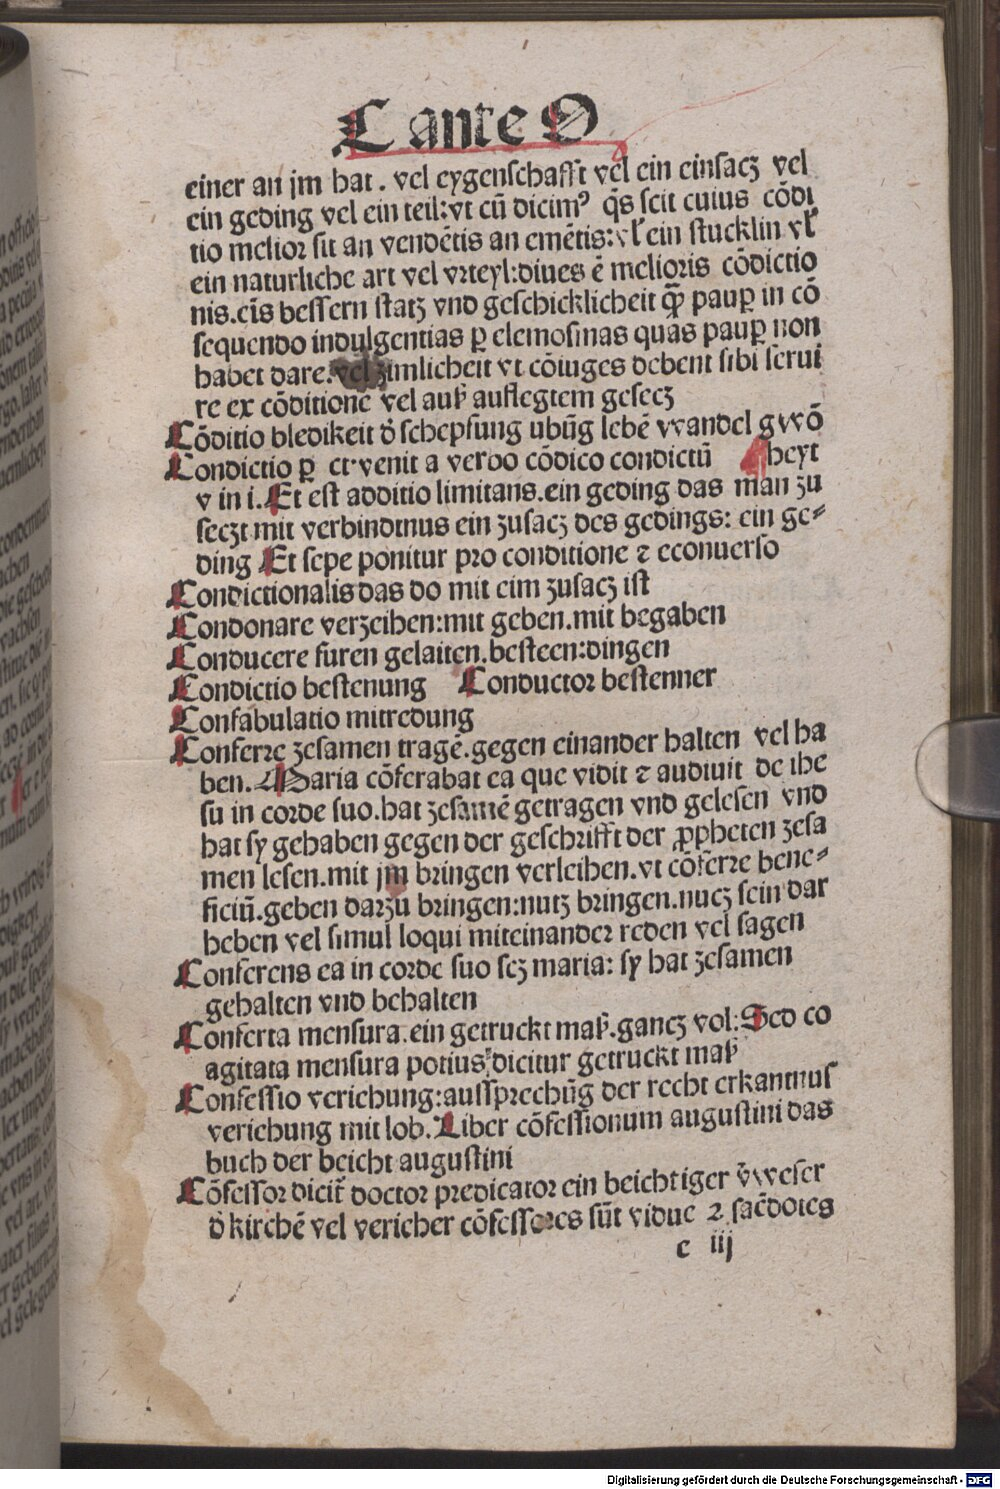 C ante O
einer an jm hat . vel eygenschafft vel ein einsacz vel
ein geding vel ein teil: vt cū dicimꝰ q̄s scit cuius cōdi
tio melior sit an vendētis an emētis: vl̓ ein stucklin vl̓
ein naturliche art vel vrteyl: diues ē melioris cōdictio
nis. eīs bessern statz vnd geschicklicheit q̄ꝫ paup̄ in cō
sequendo indulgentias ꝑ elemosinas quas paup̄ non
habet dare. vel zimlicheit vt cōiuges debent sibi serui
re ex cōditione vel auß auflegtem gesecz
Cōditio bledikeit d̄ schepfung ubūg lebē wandel gwō
Condictio ꝑ ct venit a verbo cōdico condictū heyt
v in i. Et est additio limitans. ein geding das man zu
seczt mit verbindtnus ein zusacz des gedings: ein ge⸗
ding Et sepe ponitur pro conditione ⁊ econuerso
Condictionalis das do mit eim zusacz ist
Condonare verzeihen: mit geben. mit begaben
Conducere furen gelaiten. besteen: dingen
Condictio bestenung Conductor bestenner
Confabulatio mitredung
Conferre zesamen tragē. gegen einander halten vel ha
ben. Maria cōferabat ea que vidit ⁊ audiuit de ihe
su in corde suo. hat zesamē getragen vnd gelesen vnd
hat sy gehaben gegen der geschrifft der ꝓpheten zesa
men lesen. mit jm bringen verleihen. vt cōferre bene⸗
ficiū. geben darzu bringen: nutz bringen. nucz sein dar
heben vel simul loqui miteinander reden vel sagen
Conferens ea in corde suo scz maria: sy hat zesamen
gehalten vnd behalten
Conferta mensura. ein getruckt maß. gancz vol: Sed co
agitata mensura potius dicitur getruckt maß
Confessio veriehung: aussprechūg der recht erkantnus
veriehung mit lob. Liber cōfessionum augustini das
buch der beicht augustini
Cōfessor dicit̄ doctor predicator ein beichtiger v̄weser
d̄ kirchē vel vericher cōfessores sūt vidue ⁊ sac̄dotes
c iij
Digitalisierung gefördert durch die Deutsche Forschungsgemeinschaft - DFG